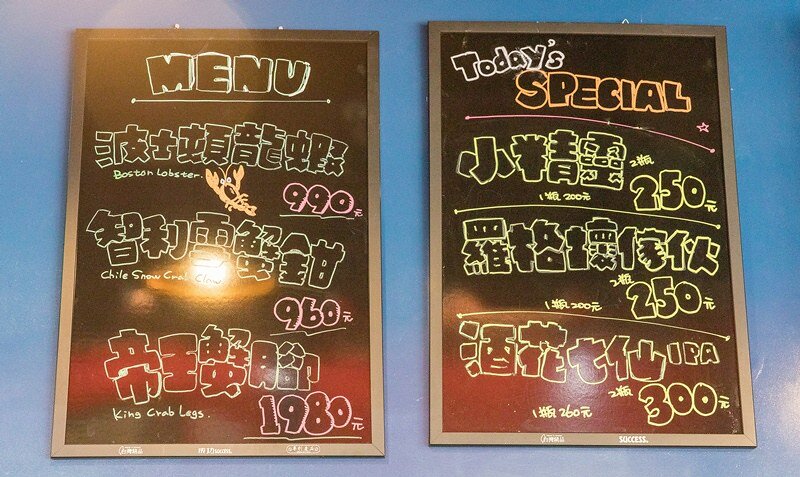 MENU
波士頓龍蝦
Boston Lobster
990元
智利雪蟹鉗
Chile Snow Crab Claw
960元
帝王蟹腳
King Crab Lags.
1980元
SUCCESS.
Today's
SPECIAL
小精靈
2瓶
1瓶 200元
250元
羅格壞傢伙
2瓶
1瓶 200元
250元
酒花七仙 IPA
2瓶
1瓶 260元
300元
SUCCESS.